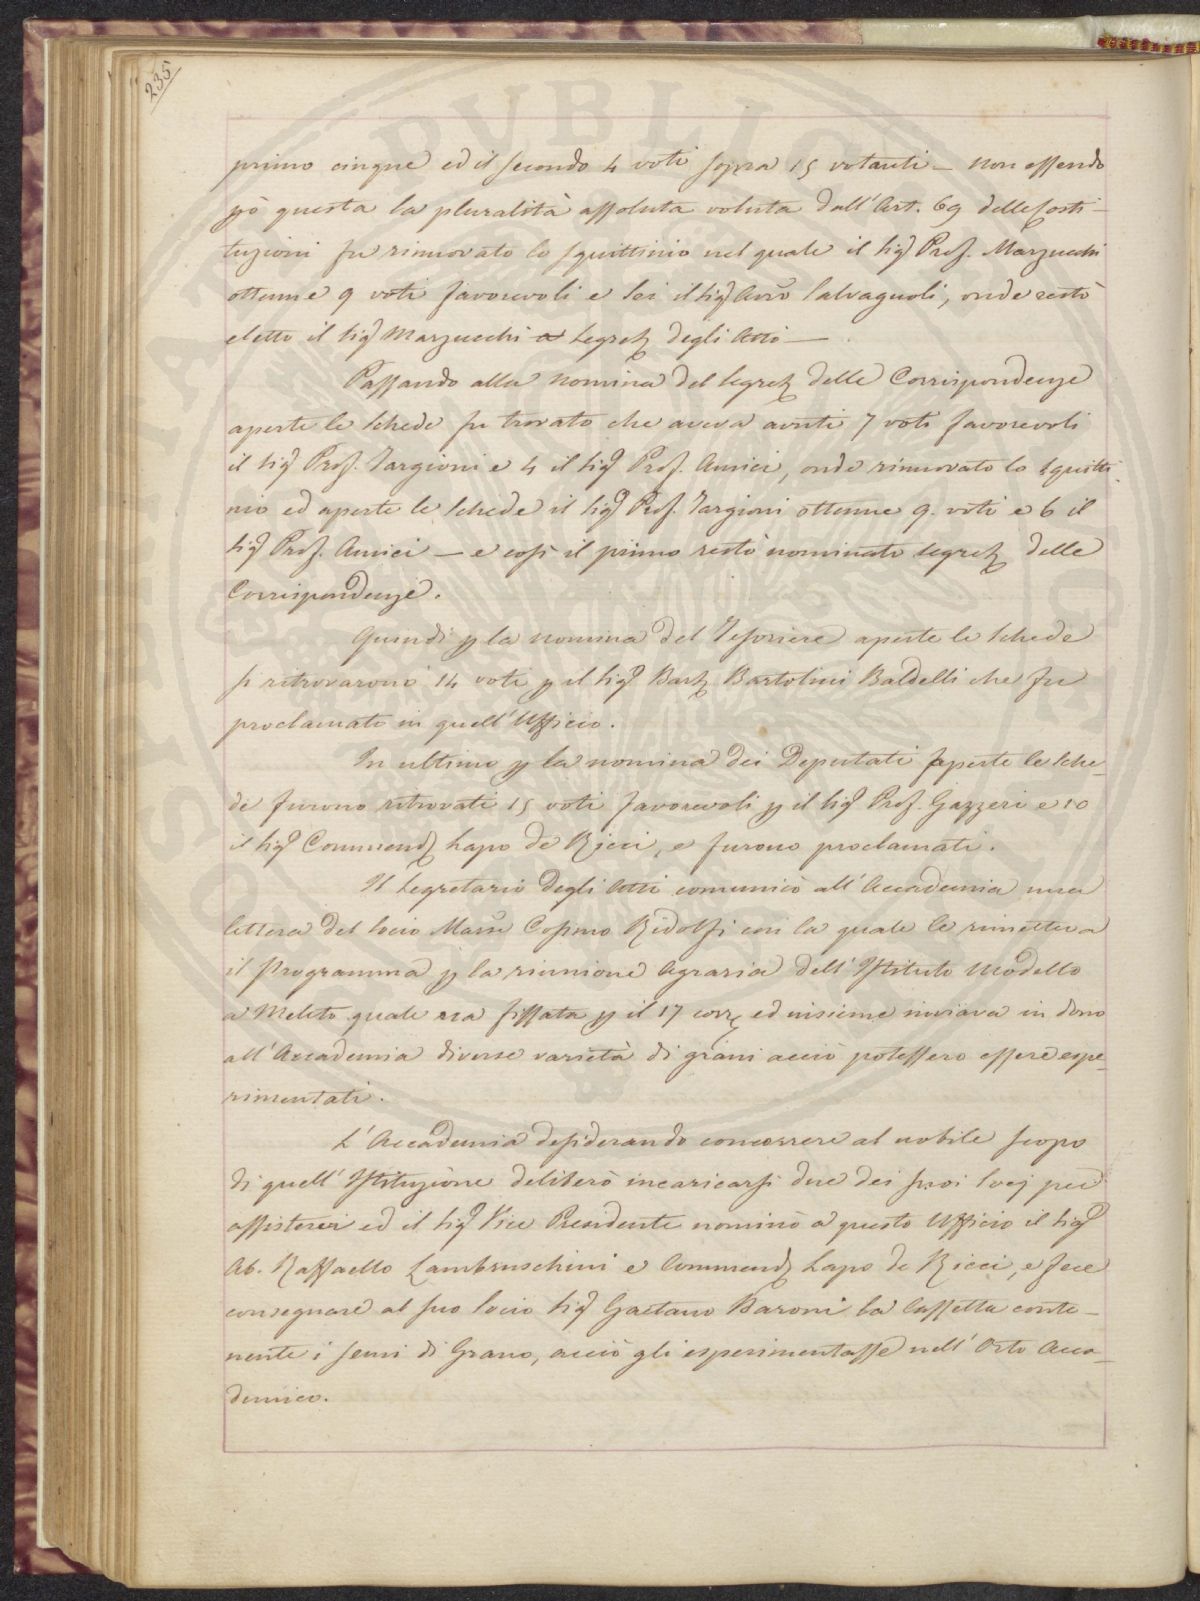 235
primo cinque ed il secondo 4 voti sopra 15 votanti — Non essendo
pò questa la pluralità assoluta voluta dall'Art. 69 delle Costi-
tuzioni fu rinnovato lo squittinio nel quale il Sigr Prof. Marzucchi
ottenne 9 voti favorevoli e sei il Sigr Avvo Salvagnoli, onde restò
eletto il Sigr Marzucchi a Segret degli Atti —
Passando alla nomina del Segret delle Corrispondenze
aperte le Schede fu trovato che aveva avuti 7 voti favorevoli
il Sigr Prof. Targioni e 4 il Sigr Prof. Amici, onde rinnovato lo Squitti-
nio ed aperte le Schede il Sigr Prof. Targioni ottenne 9. voti e 6 il
Sigr Prof. Amici — e così il primo restò nominato Segret delle
Corrispondenze.
Quindi p la nomina del Tesoriere aperte le Schede
si ritrovarono 14 voti p il Sigr Bart Bartolini Baldelli che fu
proclamato in quell'Uffizio.
In ultimo p la nomina dei Deputati aperte le Sche-
de furono ritrovati 15 voti favorevoli p il Sigr Prof. Gazzeri e 10
il Sigr Commend Lapo de Ricci, e furono proclamati.
Il Segretario degli Atti comunicò all'Accademia una
lettera del Socio March Cosimo Ridolfi con la quale le rimetteva
il Programma p la riunione Agraria dell'Istituto Modello
a Meleto quale era fissata p il 17 corr ed insieme inviava in dono
all'Accademia diverse varietà di grani acciò potessero essere espe-
rimentati.
L'Accademia desiderando concorrere al nobile scopo
di quell'Istituzione deliberò incaricarsi due dei suoi Socj per
assisterei ed il Sigr Vice Presidente nominò a questo Uffizio il Sigr
Ab. Raffaello Lambruschini e Commend Lapo de Ricci, e fece
consegnare al suo Socio Sigr Gaetano Baroni la Cassetta conte-
nente i semi di Grano, acciò gli esperimentasse nell'Orto Acca-
demico.